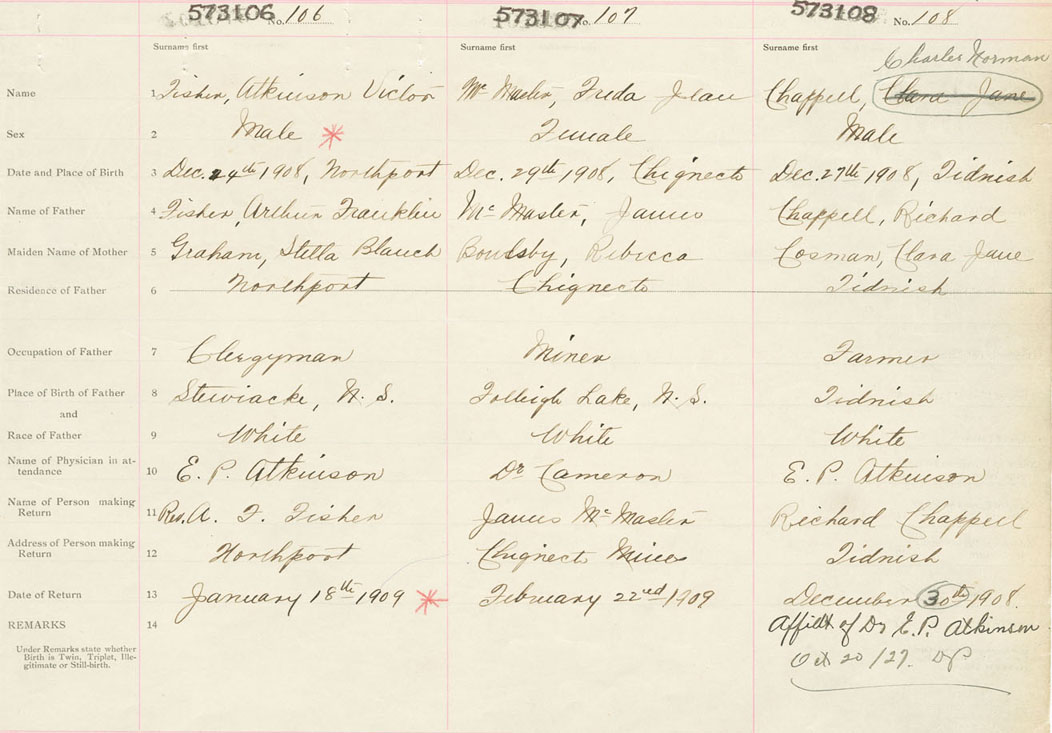 573106 No. 106
573107 No. 107
573108 No. 108
Surname first
Surname first
Surname first
Charles Norman
Name 1 Fisher, Atkinson Victor
Mc Master, Freda Jean
Chappell, Clara Jane
Sex 2 Male *
Female
Male
Date and Place of Birth 3 Dec. 24th 1908, Northport
Dec. 29th 1908, Chignecto
Dec. 27th 1908, Tidnish
Name of Father 4 Fisher, Arthur Franklin
Mc Master, James
Chappell, Richard
Maiden Name of Mother 5 Graham, Stella Blanch
Rebecca
Cosman, Clara Jane
Residence of Father 6 Northport
Chignecto
Tidnish
Occupation of Father 7 Clergyman
Miner
Farmer
Place of Birth of Father 8 Stewiacke, N. S.
Lake, N. S.
Tidnish
and
Race of Father 9 White
White
White
Name of Physician in at-
tendance 10 E. P. Atkinson
Dr Cameron
E. P. Atkinson
Name of Person making
Return 11 Rev. A. F. Fisher
James Mc Master
Richard Chappell
Address of Person making
Return 12 Northport
Chignecto Mines
Tidnish
Date of Return 13 January 18th 1909 *
February 22nd 1909
December 30th 1908.
REMARKS 14
Affidt of Dr E. P. Atkinson
Oct 20/27.
Under Remarks state whether
Birth is Twin, Triplet, Ille-
gitimate or Still-birth.